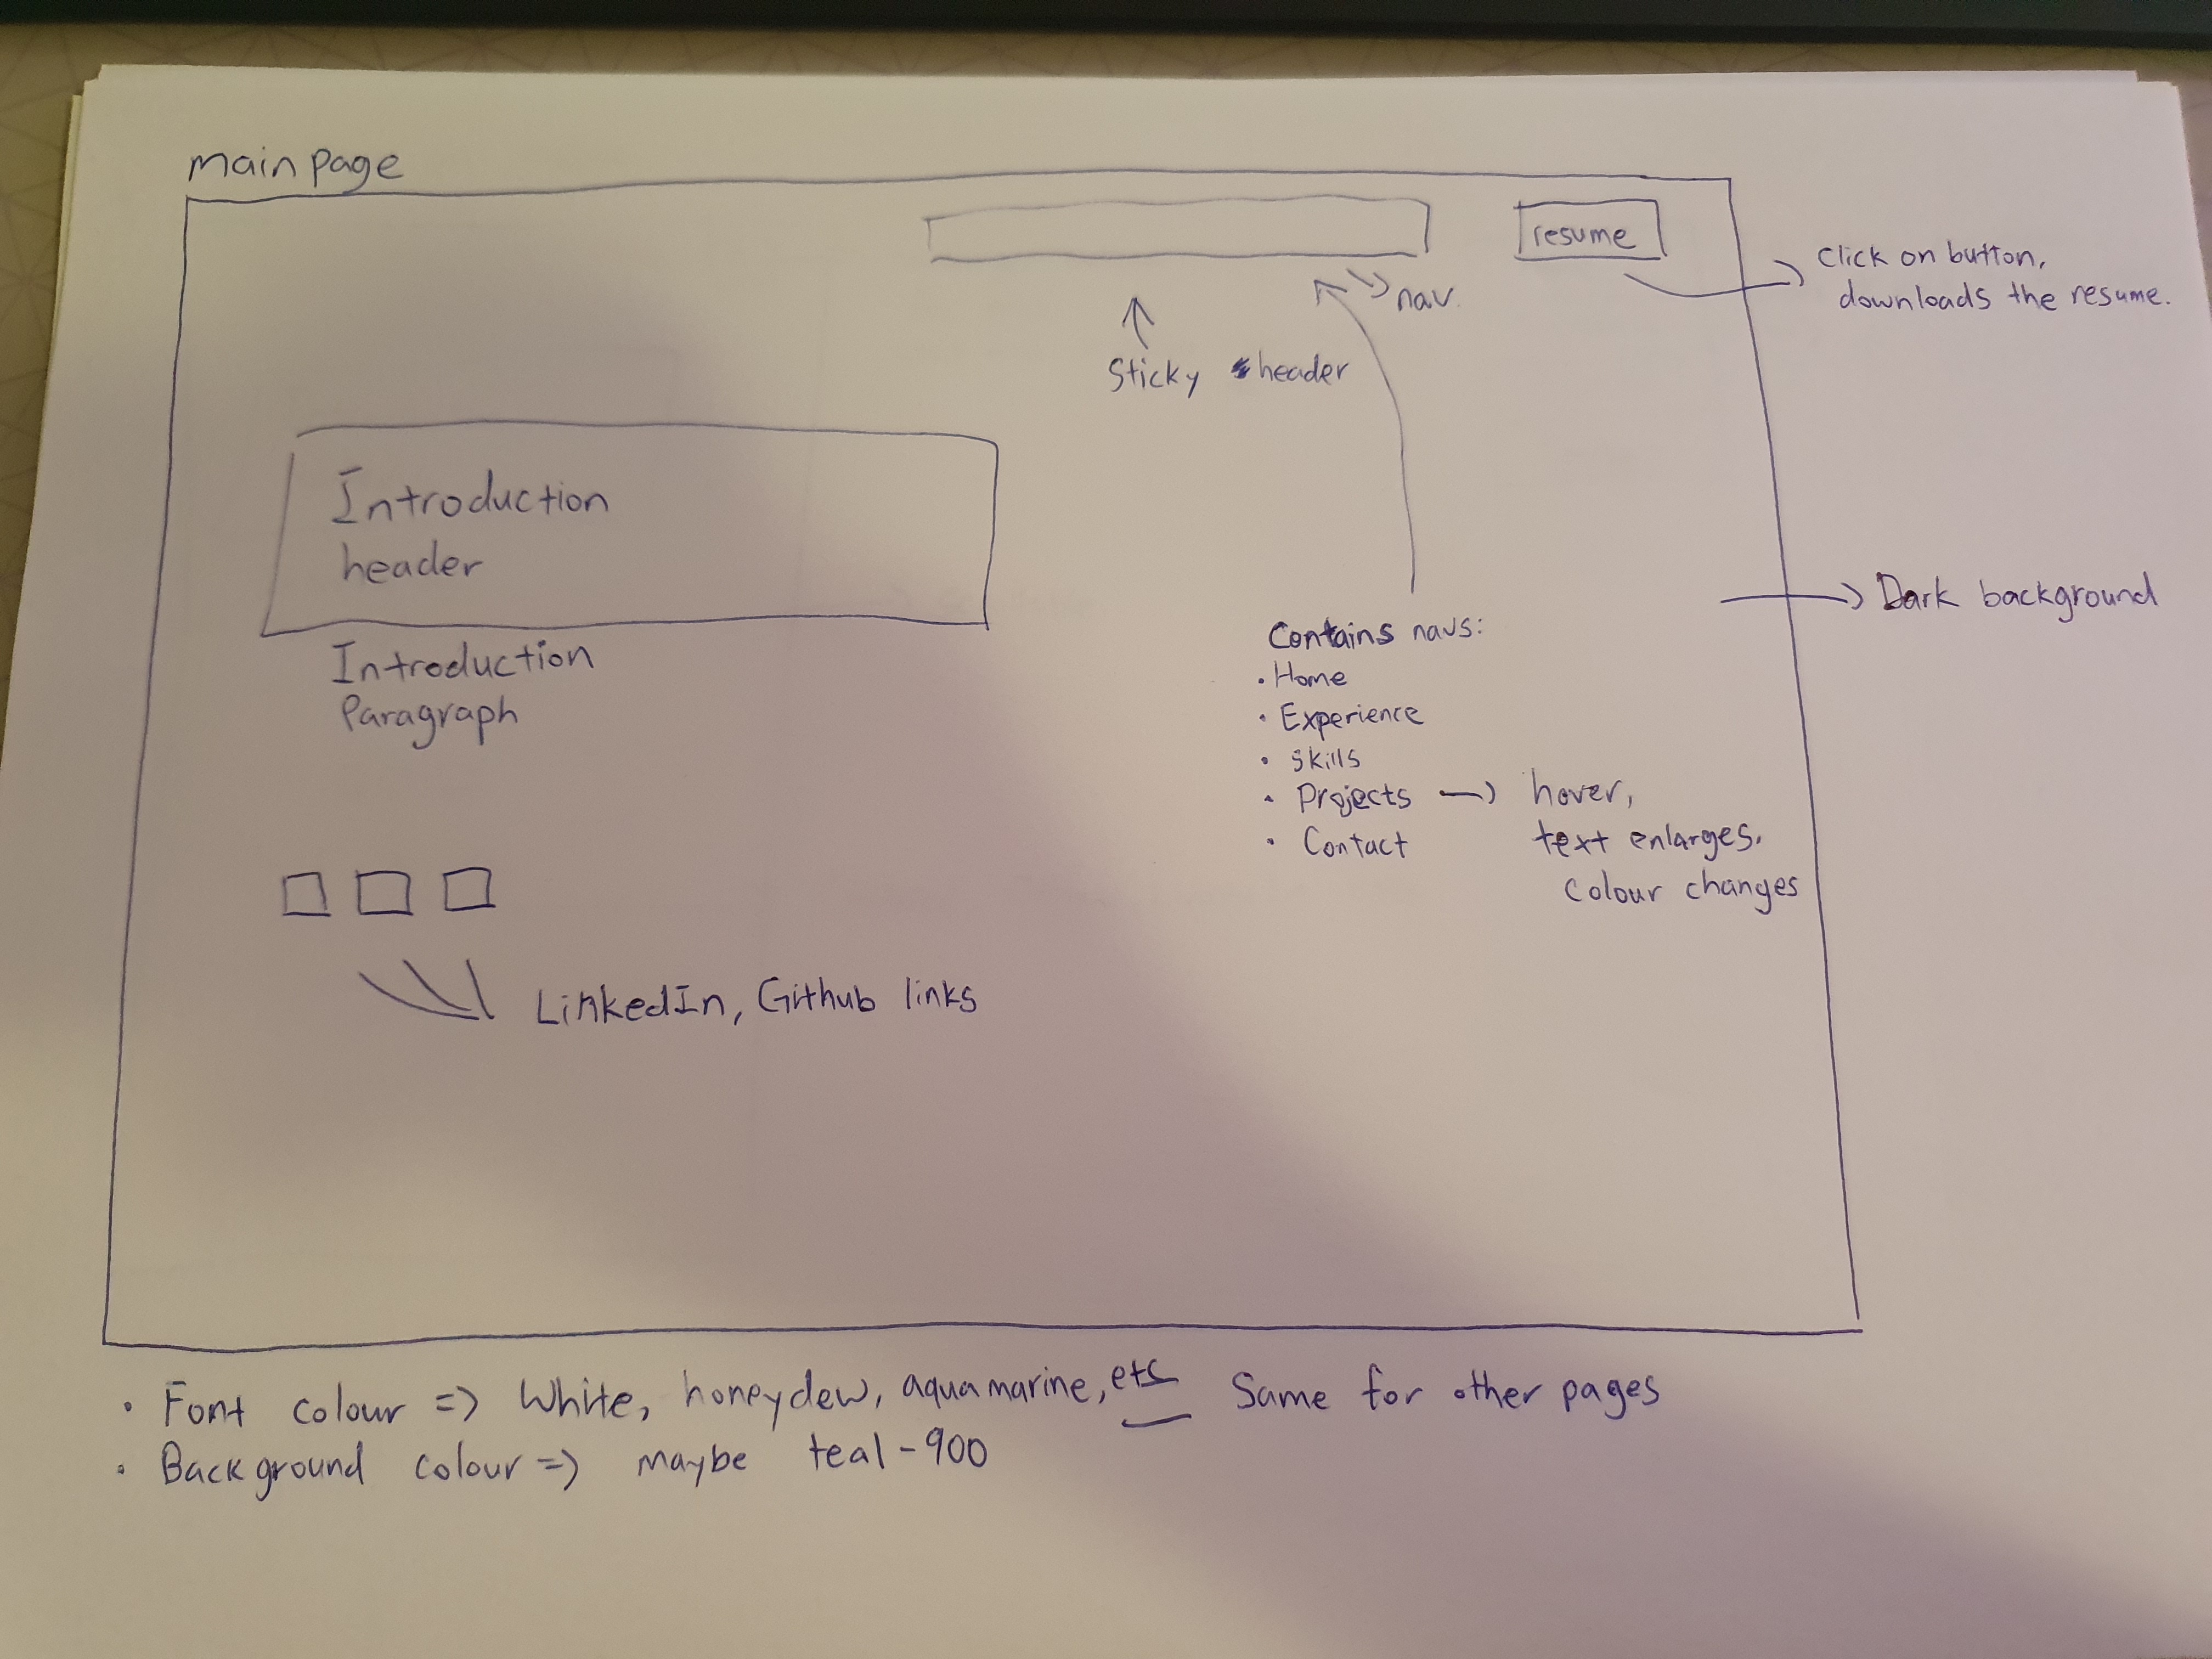 main page
resume
click on button,
downloads the resume.
nav.
Sticky header
Introduction
header
Introduction
Paragraph
Dark background
Contains navs:
• Home
• Experience
• Skills
• Projects → hover,
text enlarges.
• Contact
Colour changes
LinkedIn, Github links
• Font colour => White, honeydew, aquamarine, etc Same for other pages
• Background colour => maybe teal-900